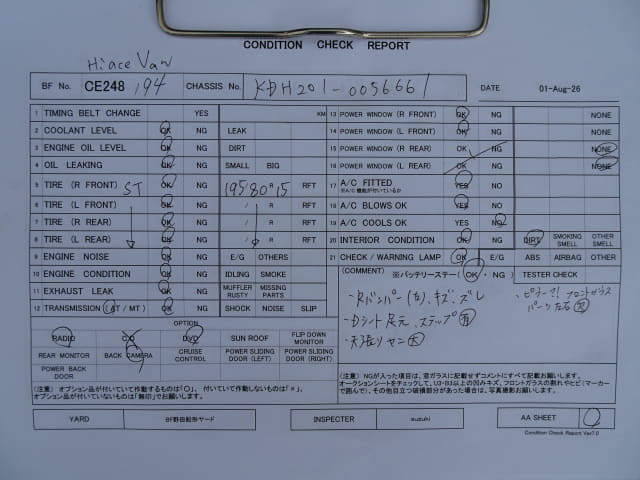 CONDITION CHECK REPORT
Hiace Van
BF No. CE248 194 CHASSIS No. KDH201-0056661 DATE 01-Aug-26
1 TIMING BELT CHANGE YES KM
2 COOLANT LEVEL OK NG LEAK
3 ENGINE OIL LEVEL OK NG DIRT
4 OIL LEAKING OK NG SMALL BIG
5 TIRE (R FRONT) ST OK NG 195/80R15 RFT
6 TIRE (L FRONT) OK NG / R RFT
7 TIRE (R REAR) OK NG / R RFT
8 TIRE (L REAR) OK NG / R RFT
9 ENGINE NOISE OK NG E/G OTHERS
10 ENGINE CONDITION OK NG IDLING SMOKE
11 EXHAUST LEAK OK NG MUFFLER RUSTY MISSING PARTS
12 TRANSMISSION (AT / MT) OK NG SHOCK NOISE SLIP
13 POWER WINDOW (R FRONT) OK NG NONE
14 POWER WINDOW (L FRONT) OK NG NONE
15 POWER WINDOW (R REAR) OK NG NONE
16 POWER WINDOW (L REAR) OK NG NONE
17 A/C FITTED YES NO
※A/C 機能が付いているか
18 A/C BLOWS OK YES NG
19 A/C COOLS OK YES NG
20 INTERIOR CONDITION OK NG DIRT SMOKING SMELL OTHER SMELL
21 CHECK / WARNING LAMP OK E/G ABS AIRBAG OTHER
(COMMENT) ※バッテリーステー (OK・NG) TESTER CHECK
・Rバンパー(右)、キズ、ズレ
・Dシート足元、ステップ
・天張り
OPTION
RADIO CD DVD SUN ROOF FLIP DOWN MONITOR
REAR MONITOR BACK CAMERA CRUISE CONTROL POWER SLIDING DOOR (LEFT) POWER SLIDING DOOR (RIGHT)
POWER BACK DOOR
(注意) オプション品が付いていて作動するものは「〇」、付いていて作動しないものは「×」、
オプション品が付いていないものは「無印」でお願いします。
(注意) NGが入った項目は、窓ガラスに記載せずコメントにすべて記載お願いします。
オークションシートをチェックして、U3・B3以上の凹みキズ、フロントガラスの割れやヒビ(マーカーで囲んで)、その他目立つ破損部分があった場合は、写真撮影お願いします。
YARD BF野田船形ヤード INSPECTER suzuki AA SHEET
Condition Check Report Ver7.0